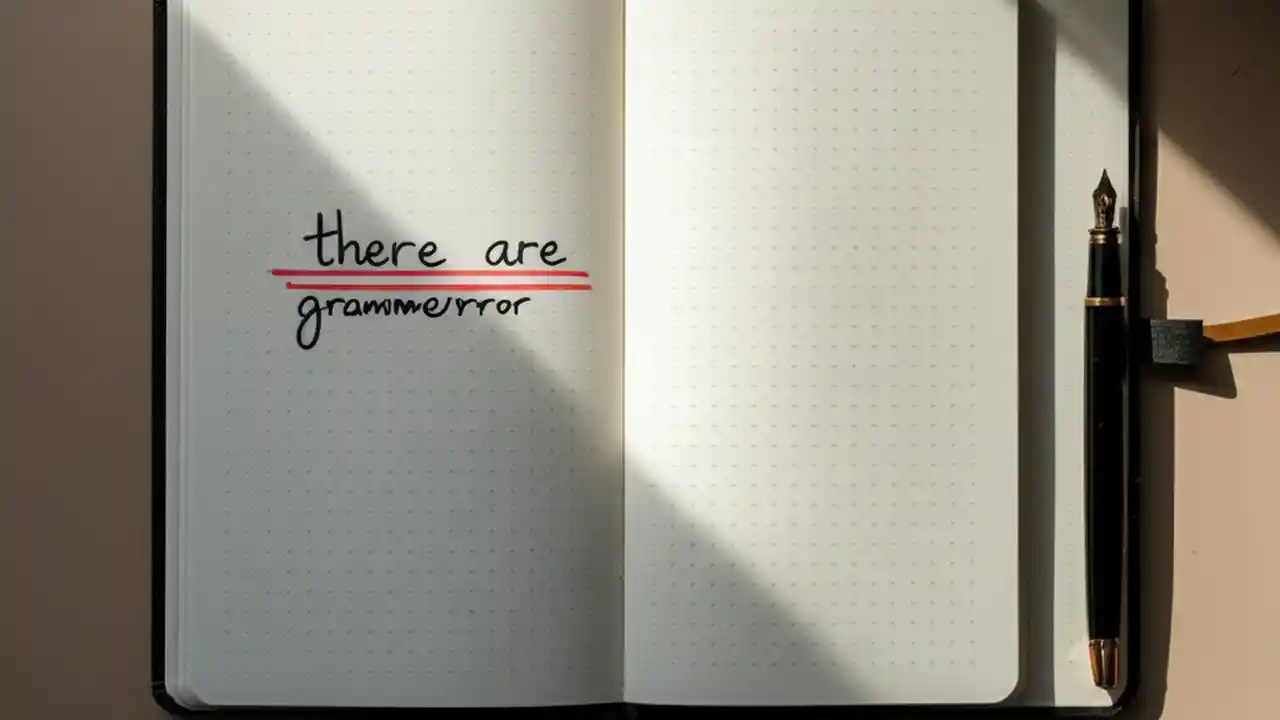 there are
grammerror